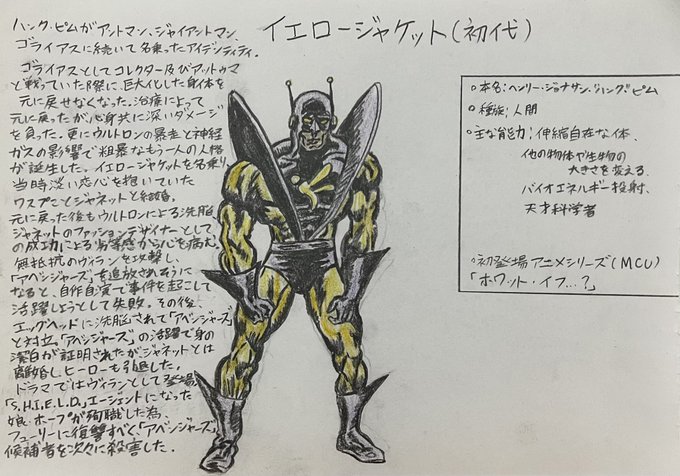 イエロージャケット(初代)
ハンク・ピムがアントマン、ジャイアントマン、
ゴライアスに続いて名乗ったアイデンティティ.
ゴライアスとしてコレクター及びアットゥマ
と戦っていた際に、巨大化した身体を
元に戻せなくなった。治療によって
元に戻ったが心身共に深いダメージ
を負った。更にウルトロンの暴走と神経
ガスの影響で粗暴なもう一人の人格
が誕生した。イエロージャケットを名乗り
当時淡い恋心を抱いていた
ワスプことジャネットと結婚。
元に戻った後もウルトロンによる洗脳、
ジャネットのファッションデザイナーとして
の成功による劣等感から心を病み、
無抵抗のヴィランを攻撃し、
「アベンジャーズ」を追放されそうに
なると、自作自演で事件を起こして
活躍しようとして失敗。その後、
エッグヘッドに洗脳されて「アベンジャーズ」
と対立。「アベンジャーズ」の活躍で身の
潔白が証明されたがジャネットとは
離婚し、ヒーローも引退した。
ドラマではヴィランとして登場。
「S.H.I.E.L.D.」エージェントになった
娘・ホープが殉職した為、
フューリーに復讐すべく、「アベンジャーズ」
候補者を次々に殺害した.
○本名:ヘンリー・ジョナサン・ハンク・ピム
○種族:人間
○主な能力:伸縮自在な体、
他の物体や生物の
大きさを変える、
バイオエネルギー投射、
天才科学者
○初登場アニメシリーズ(MCU)
「ホワット・イフ…?」